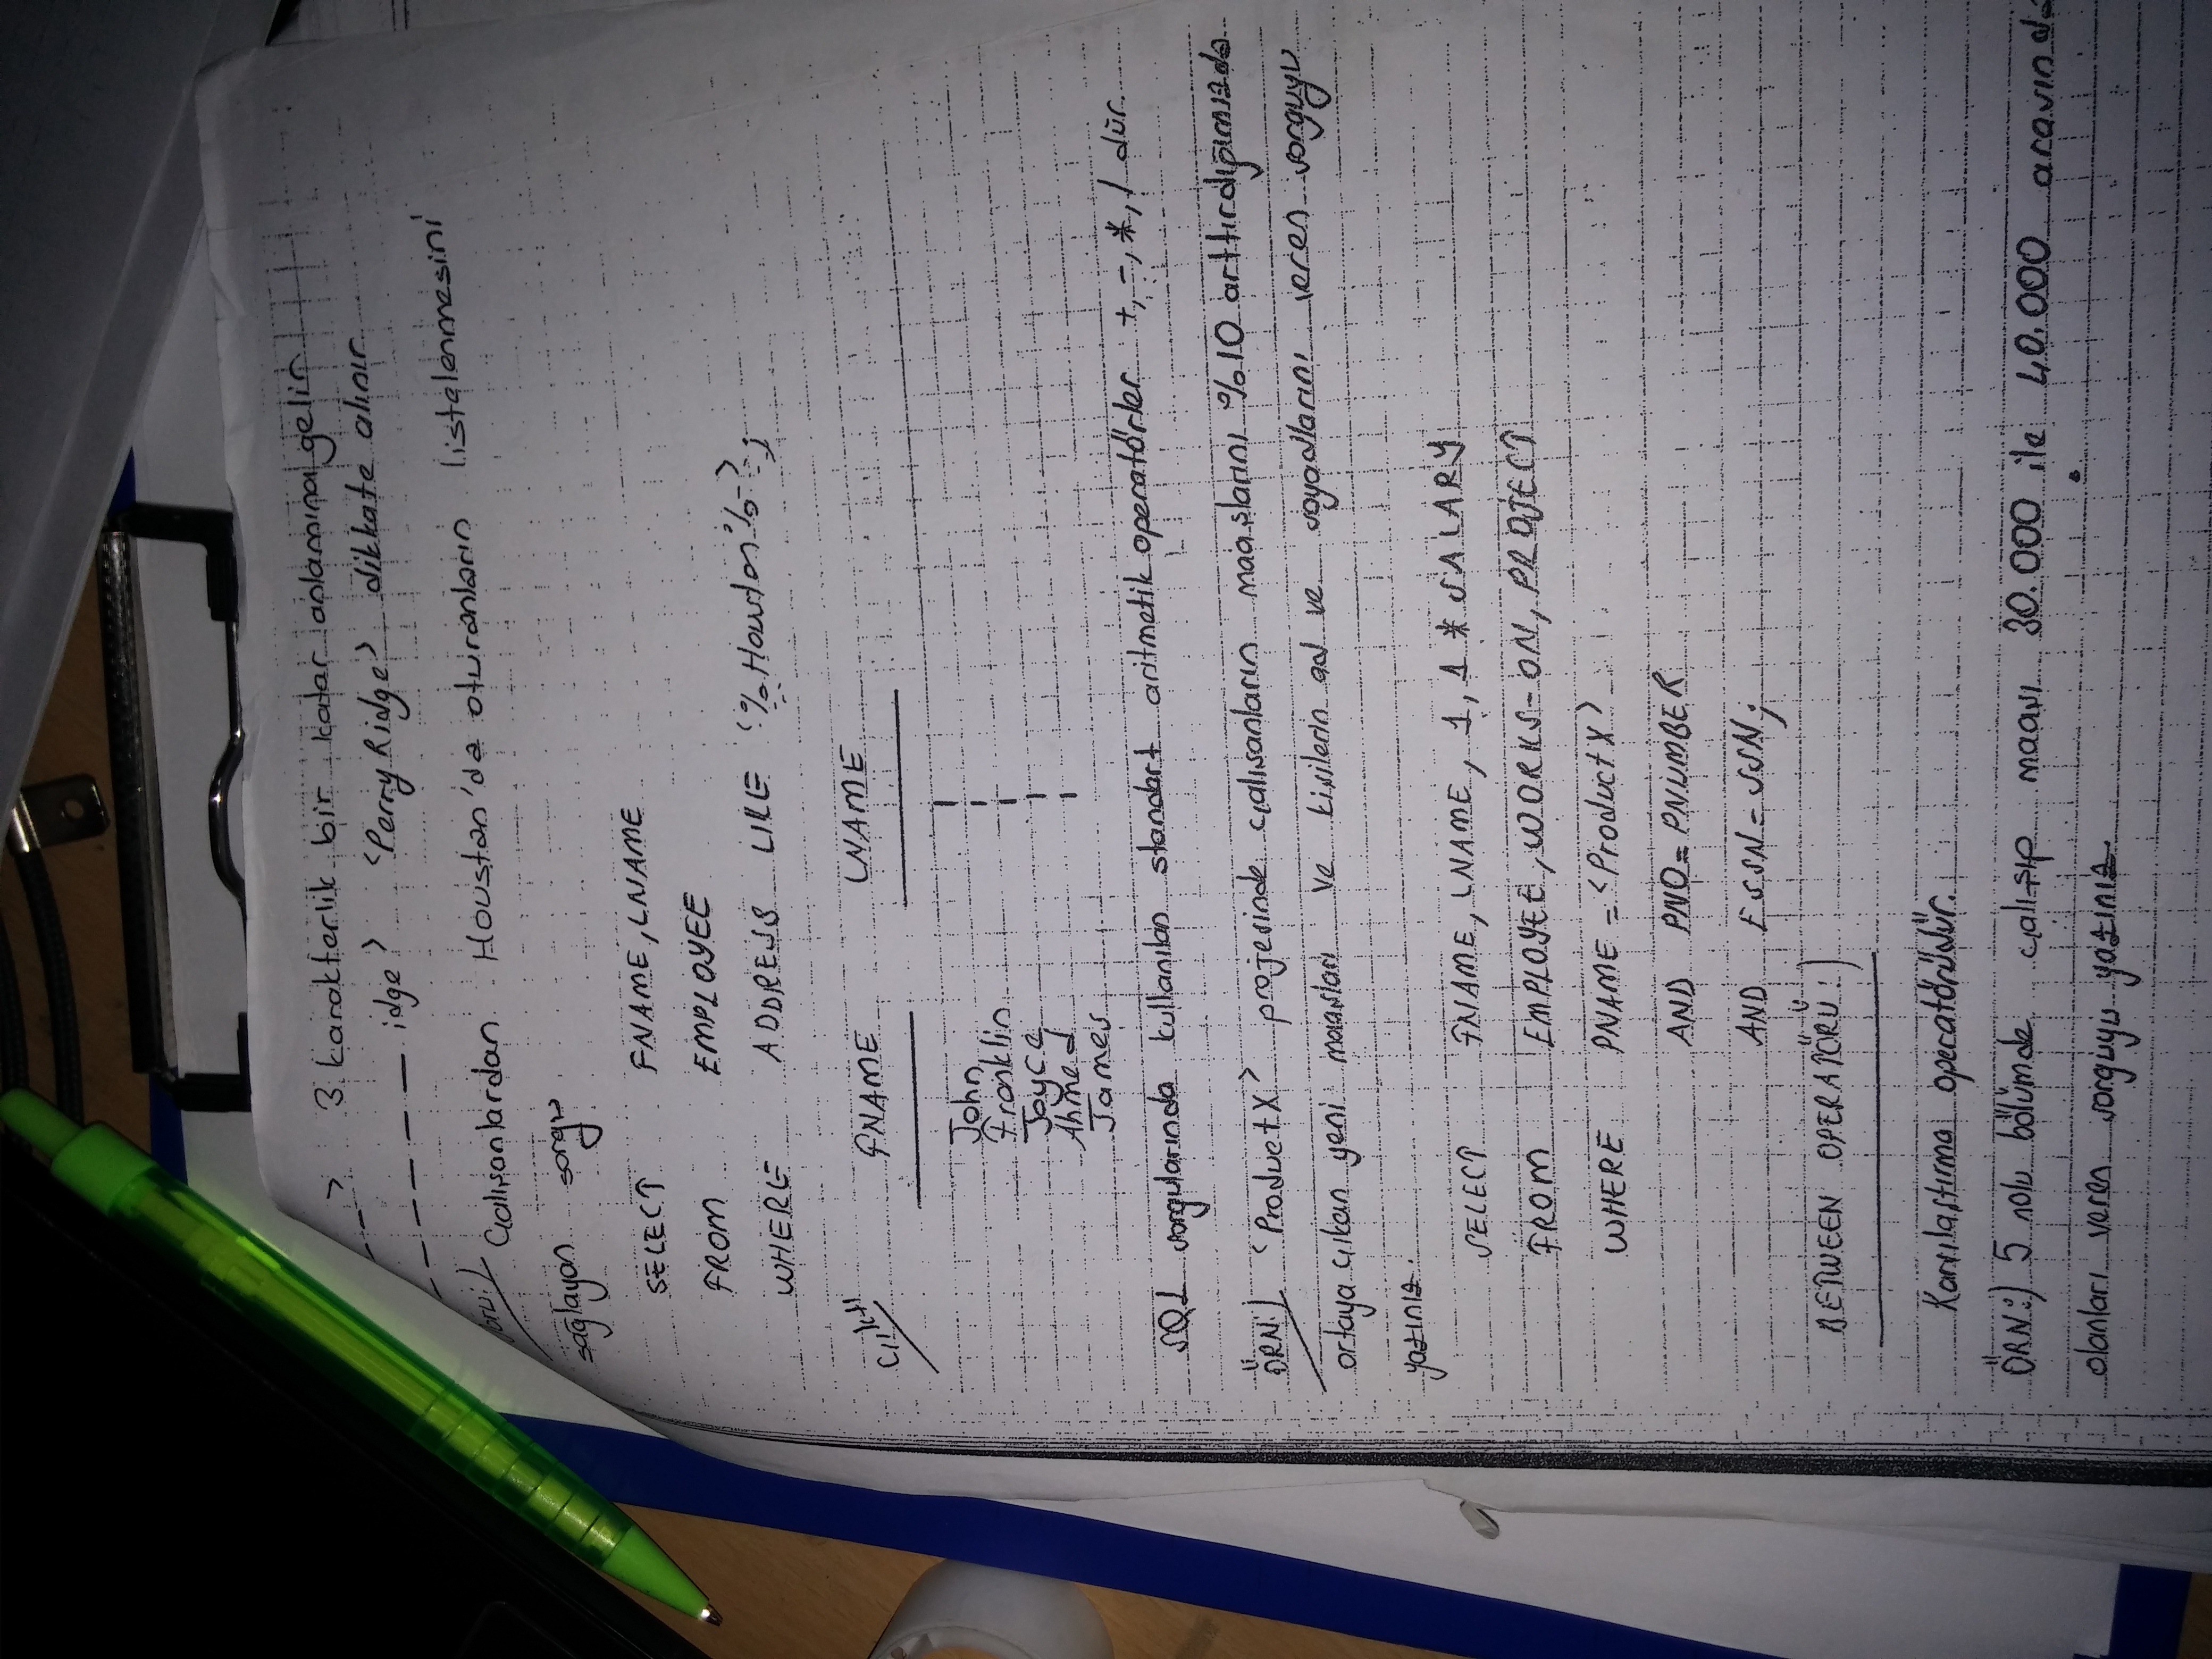 _ _ > 3 karakterlik bir katar anlamına gelir
_ _ _ _ _ _ idge> <PerryRidge> dikkate alınır.
oru:) Çalışanlardan Houston'da oturanların listelenmesini
sağlayan sorgu
SELECT FNAME, LNAME
FROM EMPLOYEE
WHERE ADDRESS LIKE <%Houston%>;
Çıktı FNAME LNAME
John
Franklin
Joyce
Ahmed
James
SQL sorgularında kullanılan standart aritmetik operatörler +, -, *, / dür.
ÖRN:) <ProductX> projesinde çalışanların maaşlarını %10 arttırdığımızda
ortaya çıkan yeni maaşları ve kişilerin ad ve soyadlarını veren sorguyu
yazınız.
SELECT FNAME, LNAME, 1,1 * SALARY
FROM EMPLOYEE, WORKS-ON, PROJECT
WHERE PNAME = <ProductX>
AND PNO = PNUMBER
AND ESSN = SSN;
BETWEEN OPERATÖRÜ:)
Karşılaştırma operatörüdür.
ÖRN:) 5 nolu bölümde çalışıp maaşı 30.000 ile 40.000 arasında
olanları veren sorguyu yazınız.